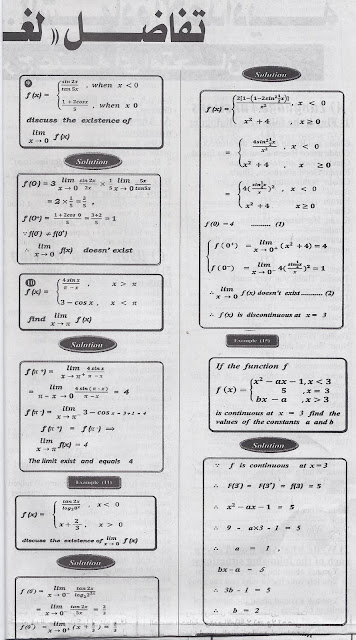 تفاضل (( لغـ
9
f(x) = { sin 2x / tan 5x , when x < 0
1 + 2cosx / 5 , when x 0
discuss the existence of
lim x → 0 f(x)
Solution
f(0⁻) = 3 lim x → 0 sin 2x / 2x × 1/5 lim x → 0 5x / tan5x
= 2 × 1/5 = 2/5 ,
f(0⁺) = 1+2cos 0 / 5 = 3+2 / 5 = 1
∵ f(0⁻) ≠ f(0⁺)
∴ lim x → 0 f(x) doesn't exist
10
f(x) = { 4 sin x / π − x , x > π
3 − cos x , x < π
find lim x → π f(x)
Solution
f(π⁺) = lim x → π⁺ 4 sin x / π − x
= lim π − x → 0 4 sin (π − x) / π − x = 4
f(π⁻) = lim x → π⁻ 3 − cos x = 3 + 1 = 4
f(π⁺) = f(π⁻) ⟹
lim x → π f(x) = 4
The limit exist and equals 4
Example (11)
f(x) = { tan 2x , x < 0
x + 2/3 , x > 0
discuss the existence of lim x → 0 f(x)
Solution
f(0⁻) = lim x → 0⁻ tan 2x
f(0⁻) = lim x → 0⁻ tan 2x / 3x = 2/3
f(0⁺) = lim x → 0⁺ (x + 2/3) = 2/3
Solution
f(x) = { 2[1−[1−2sin² ½x]] / x² , x < 0
x² + 4 , x ≥ 0
= { 4sin² ½x / x² , x < 0
x² + 4 , x ≥ 0
= { 4( sin ½x / x )² , x < 0
x² + 4 x ≥ 0
f(0) = 4 .......... (1)
{ f(0⁺) = lim x → 0⁺ (x² + 4) = 4
f(0⁻) = lim x → 0⁻ 4( sin ½x / x )² = 1
∴ lim x → 0 f(x) doesn't exist .......... (2)
∴ f(x) is discontinuous at x = 3
Example (15)
If the function f
f(x) = { x² − ax − 1, x < 3
5 , x = 3
bx − a , x > 3
is continuous at x = 3 find the
values of the constants a and b
Solution
∵ f is continuous at x = 3
∴ F(3⁻) = F(3⁺) = f(3) = 5
∴ x² − ax − 1 = 5
∴ 9 − a×3 − 1 = 5
∴ a = 1 ,
bx − a = 5
∴ 3b − 1 = 5
∴ b = 2